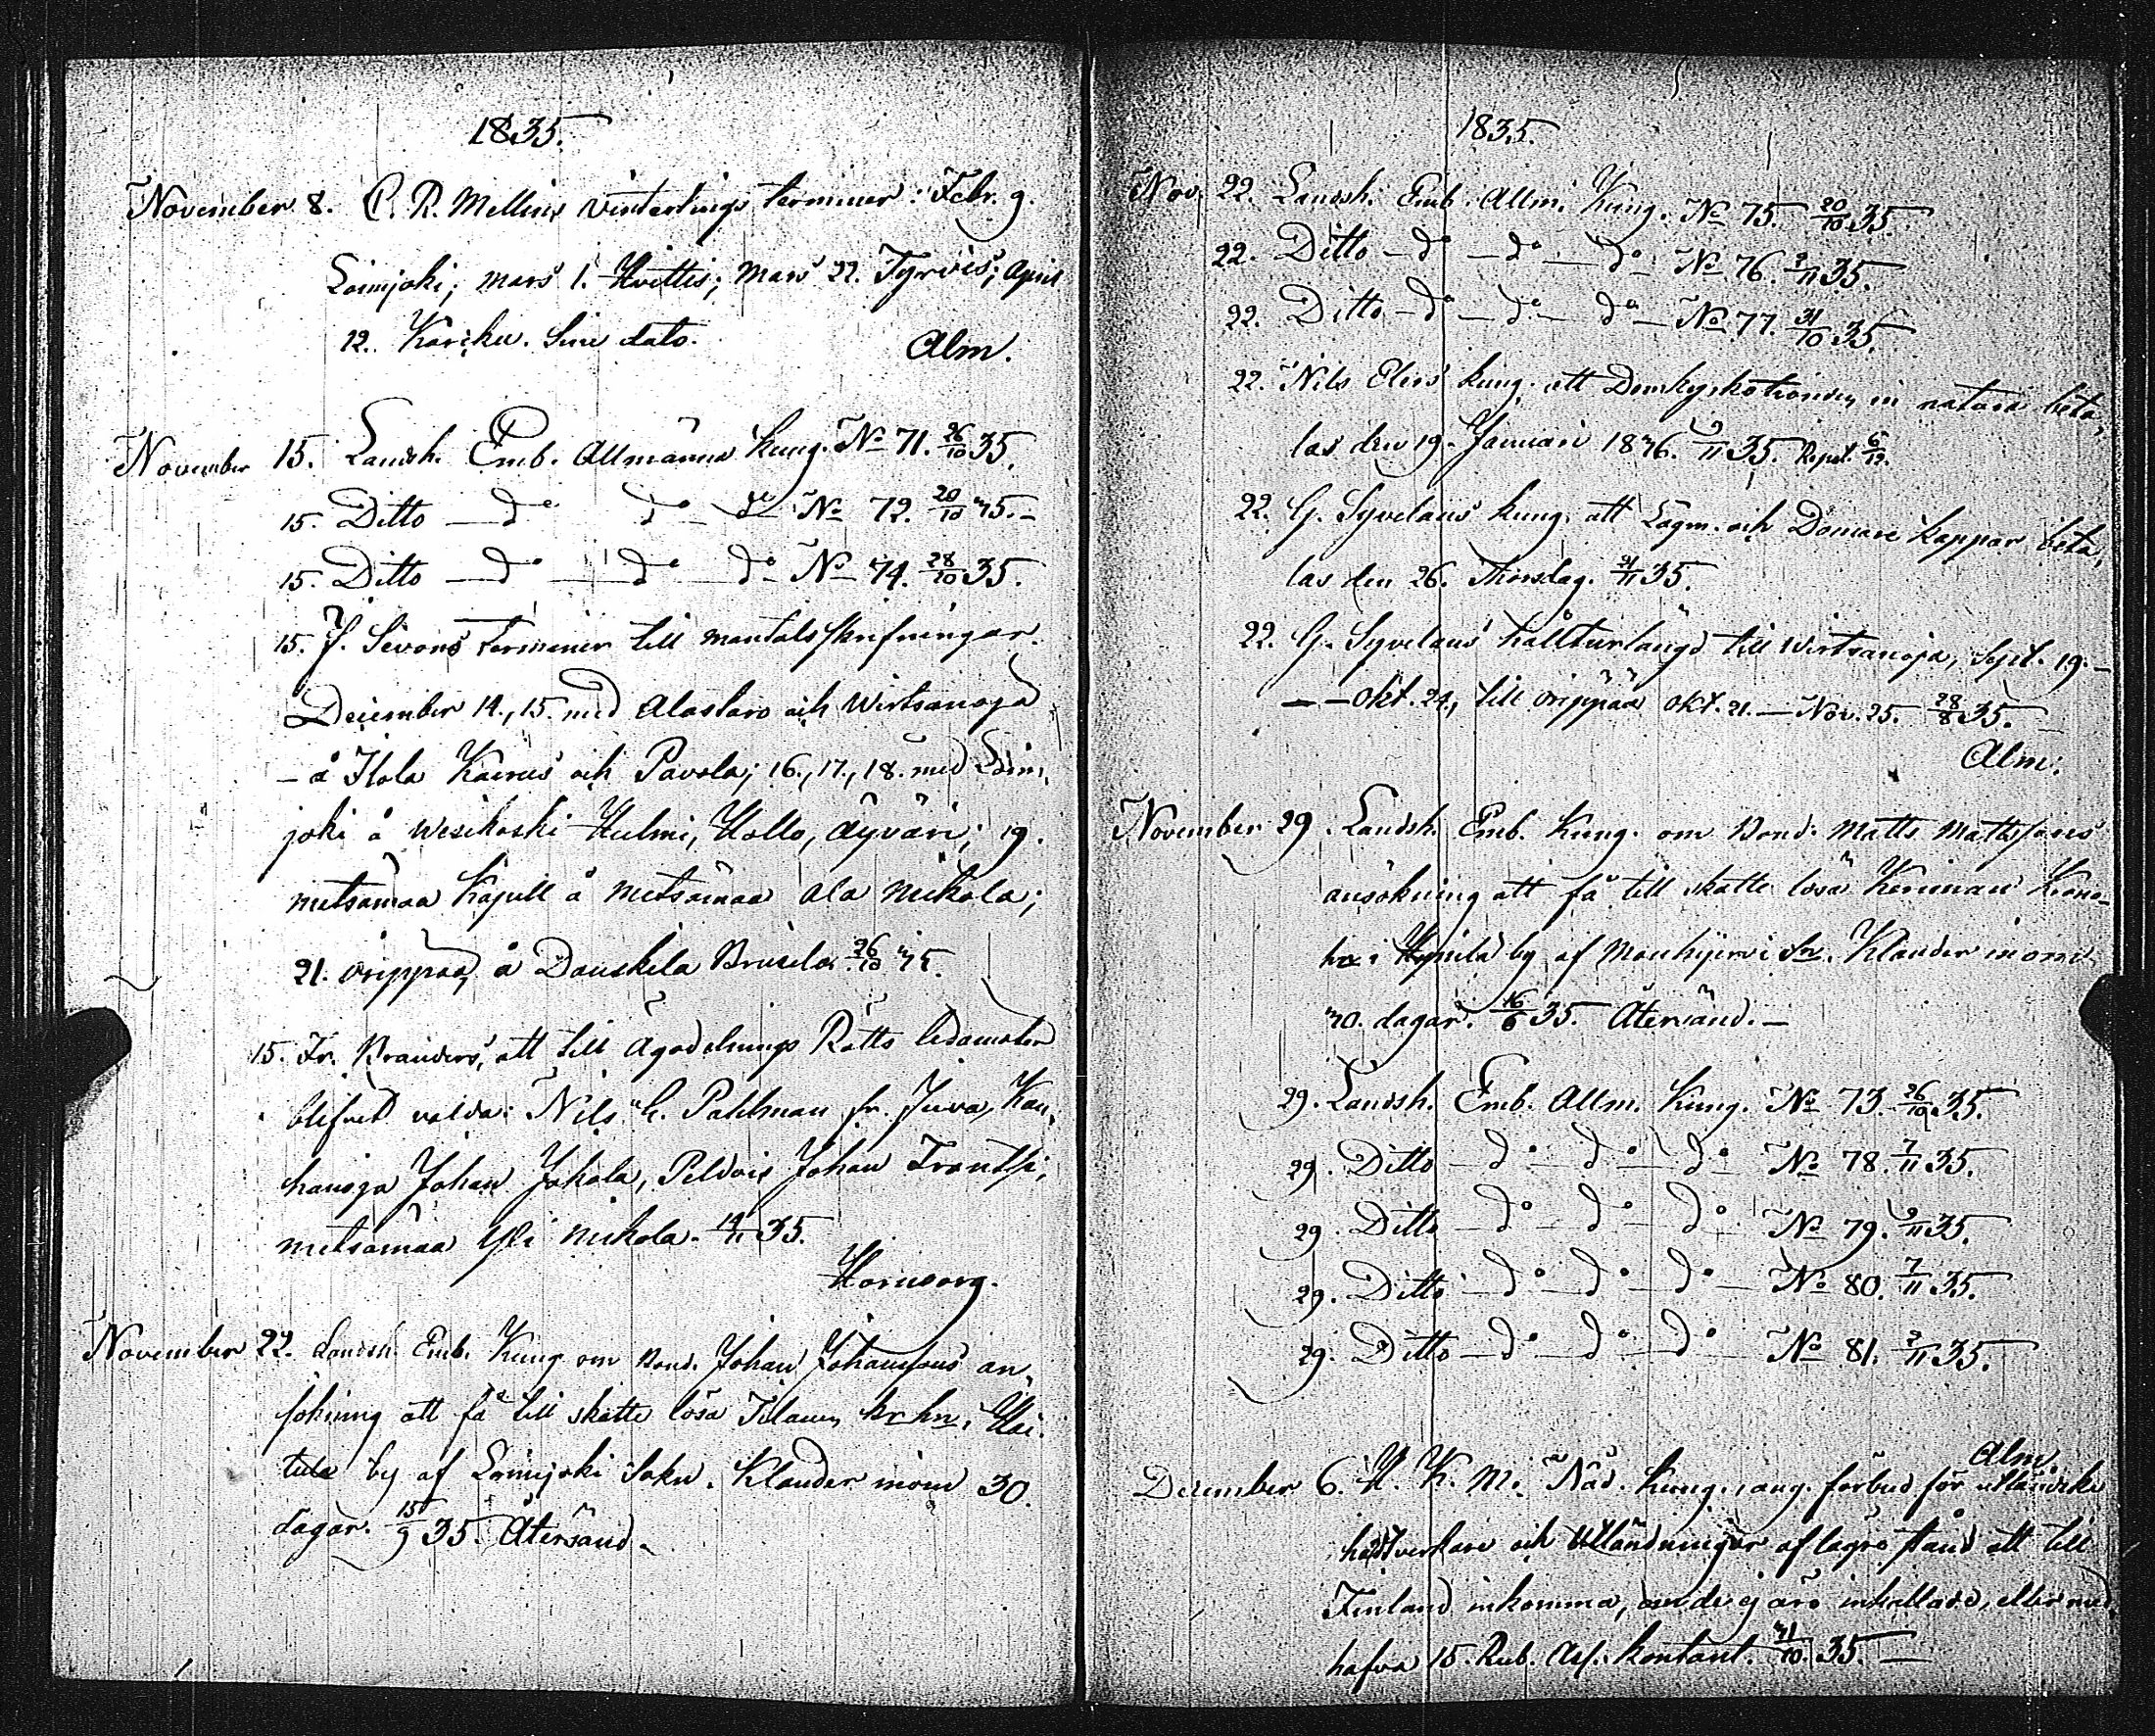 1835.
November 8. C. R. Mellins Vintertings terminer: Febr. 9.
Loimjoki; mars 1. Hvittis; Mars 22. Tyrvis; April
12. Karcku. Sine dato.
Alm.
November 15. Landsh. Emb. Allmänna Kung. No 71. 26/10 35.
15. Ditto — do do — do No 72. 20/10 35. –
15. Ditto — do — do — do No 74. 28/10 35.
15. J. Sevons Terminer till mantals skrifningar.
December 14., 15. med Alastaro och Wirtsanoja
– å Itola Kaerus och Pavola; 16., 17., 18. med Loim,
joki å Wesikoski Hulmi, Hollo, Äyväri; 19.
metsämaa Kapell å Metsämaa Ala Nickola;
21. Orippää å Dauskila Brusila 26/10 35.
15. Fr. Branders, att till Ägodelnings Rätts ledamöter
blifvit valda: Nils H. Pahlman fr. Juva, Kau,
hanoja Johan Johola, Peldois Johan Frantsi,
metsämaa Yli Nickola. 14/11 35.
Hornborg.
November 22. Landsh. Emb. Kung om Bond. Johan Johanssons an,
sökning att få till skatte lösa Tilauen kr hn i Hai,
tula by af Loimjoki Sokn. Klander inom 30.
dagar. 15/9 35. Återsänd.
1835.
Nov. 22. Landsh. Emb. Allm. Kung. No 75. 20/10 35.
22. Ditto – do – do — do – No 76. 2/11 35.
22. Ditto – do – do – do – No 77. 31/10 35.
22. Nils Elers kung. att Domkyrkotionden in natura beta,
las den 19. Januari 1836. 9/11 35. Repet. 6/12.
22. G. Syvelaus kung. att Lagm. och Domare kappar beta,
las den 26. Thorsdag. 21/11 35.
22. G. Syvelaus hållturlängd till Wirtsanoja, Sept. 19. –
– – Okt. 24., till Orippää Okt. 21. — Nov. 25. 28/8 35.
Alm.
November 29. Landsh. Emb. Kung. om Bond. Matts Mattssons
ansökning att få till skatte lösa Kerinau Krono-
hn i by af Mouhijervi Sn. Klander inom
30. dagar. 16/6 35. Återsänd. –
29. Landsh. Emb. Allm. Kung. No 73. 26/10 35.
29. Ditto – do – do – do No 78. 7/11 35.
29. Ditto – do – do – do No 79. 9/11 35.
29. Ditto – do – do – do – No 80. 7/11 35.
29. Ditto – do – do – do – No 81. 2/11 35.
Alm.
December 6. H. K. M. Nåd. Kung., ang. förbud för utländske
handtverkare och Utländningar af lägre stånd att till
Finland inkomma, om de ej äro inkallade, eller med
hafva 15. Rub. Ass. kontant. 31/10 35. —